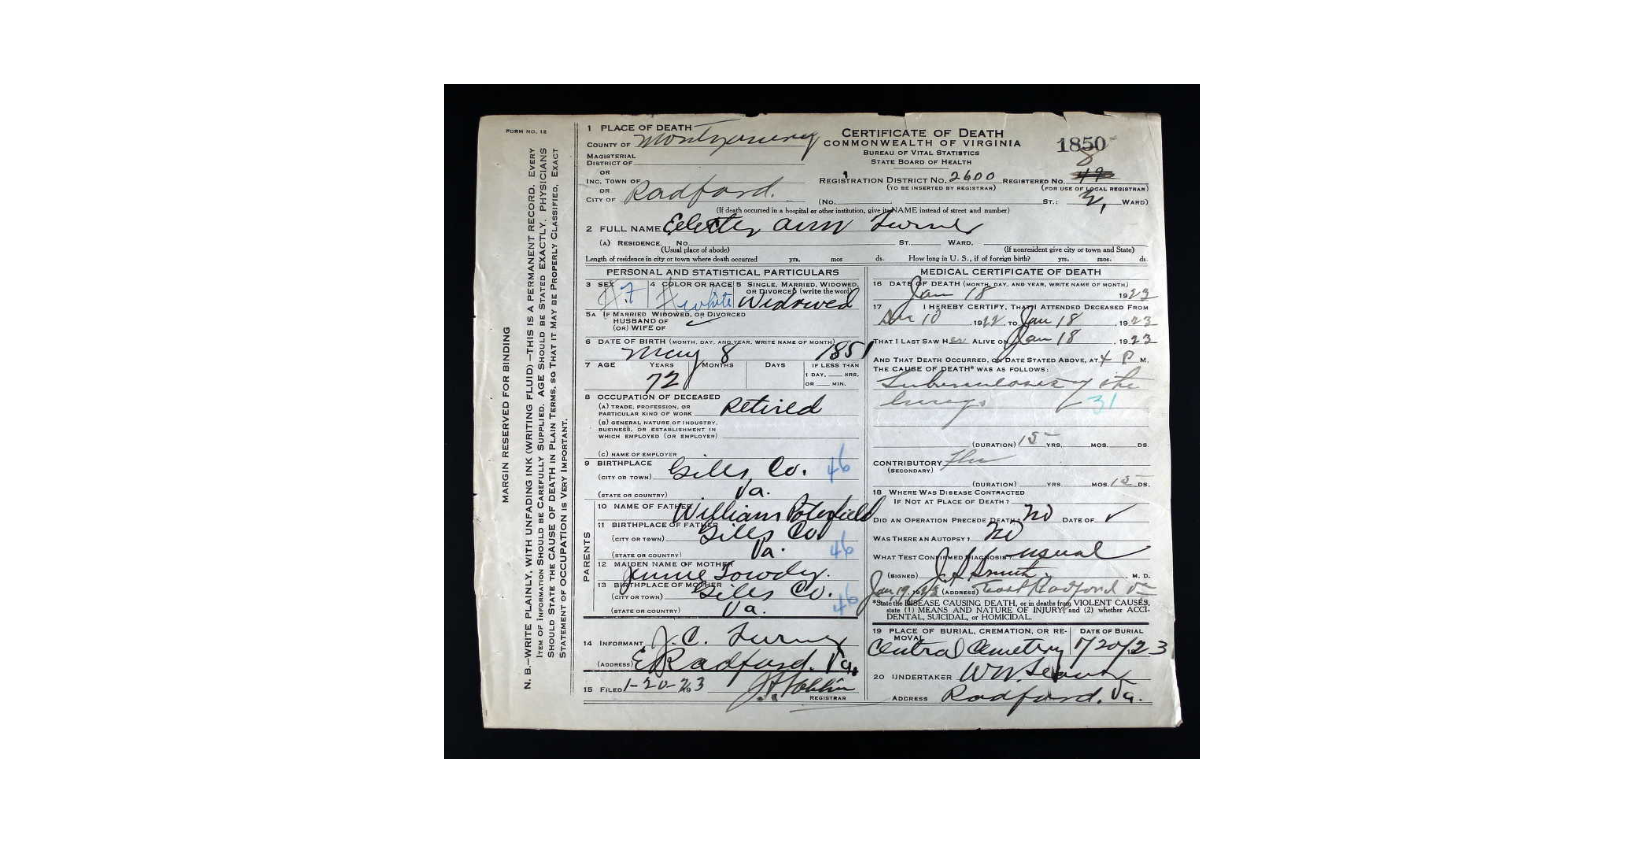 FORM NO. 12
MARGIN RESERVED FOR BINDING
N. B.—WRITE PLAINLY, WITH UNFADING INK (WRITING FLUID)—THIS IS A PERMANENT RECORD. EVERY
ITEM OF INFORMATION SHOULD BE CAREFULLY SUPPLIED. AGE SHOULD BE STATED EXACTLY. PHYSICIANS
SHOULD STATE THE CAUSE OF DEATH IN PLAIN TERMS, SO THAT IT MAY BE PROPERLY CLASSIFIED. EXACT
STATEMENT OF OCCUPATION IS VERY IMPORTANT.
1 PLACE OF DEATH
COUNTY OF Montgomery
MAGISTERIAL
DISTRICT OF
OR
INC. TOWN OF
OR
CITY OF Radford.
CERTIFICATE OF DEATH
COMMONWEALTH OF VIRGINIA
BUREAU OF VITAL STATISTICS
STATE BOARD OF HEALTH
1850
REGISTRATION DISTRICT NO. 2600 REGISTERED NO. 8
(TO BE INSERTED BY REGISTRAR) (FOR USE OF LOCAL REGISTRAR)
(No. ST.; WARD)
(If death occurred in a hospital or other institution, give its NAME instead of street and number)
2 FULL NAME Ann Turner
(A) RESIDENCE. No. ST. WARD.
(Usual place of abode) (If nonresident give city or town and State)
Length of residence in city or town where death occurred yrs. mos. ds. How long in U. S., if of foreign birth? yrs. mos. ds.
PERSONAL AND STATISTICAL PARTICULARS
3 SEX F
4 COLOR OR RACE white
5 SINGLE, MARRIED, WIDOWED, OR DIVORCED (write the word) Widowed
5A IF MARRIED, WIDOWED, OR DIVORCED
HUSBAND OF
(OR) WIFE OF
6 DATE OF BIRTH (MONTH, DAY, AND YEAR, WRITE NAME OF MONTH)
May 8 1851
7 AGE YEARS MONTHS DAYS IF LESS THAN
1 DAY, HRS.
OR MIN.
72
8 OCCUPATION OF DECEASED
(A) TRADE, PROFESSION, OR
PARTICULAR KIND OF WORK Retired
(B) GENERAL NATURE OF INDUSTRY,
BUSINESS, OR ESTABLISHMENT IN
WHICH EMPLOYED (OR EMPLOYER)
(C) NAME OF EMPLOYER
9 BIRTHPLACE
(CITY OR TOWN) Giles Co. 46
(STATE OR COUNTRY) Va.
PARENTS
10 NAME OF FATHER William Porterfield
11 BIRTHPLACE OF FATHER
(CITY OR TOWN) Giles Co
(STATE OR COUNTRY) Va. 46
12 MAIDEN NAME OF MOTHER
13 BIRTHPLACE OF MOTHER
(CITY OR TOWN) Giles Co. 46
(STATE OR COUNTRY) Va.
14 INFORMANT J. C. Turner
(ADDRESS) E. Radford. Va.
15 FILED 1-20-23
REGISTRAR
MEDICAL CERTIFICATE OF DEATH
16 DATE OF DEATH (MONTH, DAY, AND YEAR, WRITE NAME OF MONTH)
Jan 18 1923
17 I HEREBY CERTIFY, THAT I ATTENDED DECEASED FROM
10, 1922, TO Jan 18, 1923
THAT I LAST SAW HER ALIVE ON Jan 18, 1923
AND THAT DEATH OCCURRED, ON DATE STATED ABOVE, AT 4 P M.
THE CAUSE OF DEATH* WAS AS FOLLOWS:
Tuberculosis of the
lungs 31
(DURATION) 15 YRS. MOS. DS.
CONTRIBUTORY Flu
(SECONDARY)
(DURATION) YRS. MOS. 15 DS.
18 WHERE WAS DISEASE CONTRACTED
IF NOT AT PLACE OF DEATH?
DID AN OPERATION PRECEDE DEATH? No DATE OF
WAS THERE AN AUTOPSY? No
WHAT TEST CONFIRMED DIAGNOSIS? usual
(SIGNED) Smith, M. D.
Jan 19, 1923 (ADDRESS) East Radford Va
*State the DISEASE CAUSING DEATH, or in deaths from VIOLENT CAUSES,
state (1) MEANS AND NATURE OF INJURY; and (2) whether ACCI-
DENTAL, SUICIDAL, or HOMICIDAL.
19 PLACE OF BURIAL, CREMATION, OR RE-
MOVAL DATE OF BURIAL
Central Cemetery 1/20/23
20 UNDERTAKER
ADDRESS Radford. Va.